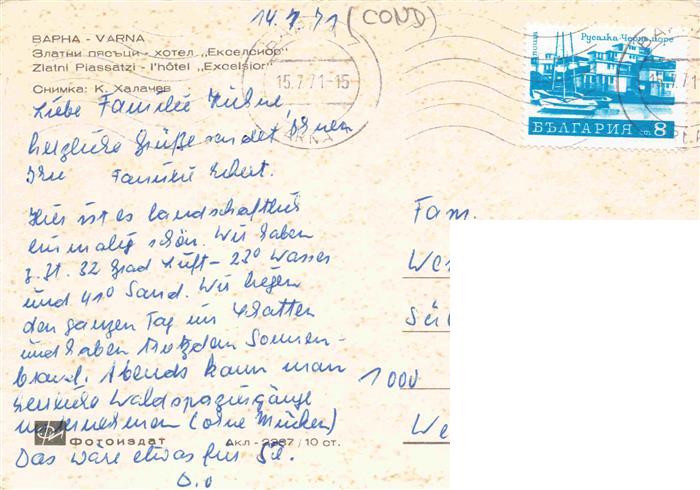 14.7.71 (COND)
ВАРНА - VARNA
Златни пясъци - хотел „Екселсиор"
Zlatni Piassatzi - l'hôtel „Excelsior"
Снимка: К. Халачев
15.7.71-15
VARNA
Русалка-Черно море
поща
БЪЛГАРИЯ ст 8
Liebe Familie
herzliche Grüße sendet Ihnen
Ihre Familie
Hier ist es landschaftlich
einmalig schön. Wir haben
z. Zt. 32 Grad Luft - 23° Wasser
und 41° Sand. Wir liegen
den ganzen Tag im Schatten
und haben trotzdem Sonnen-
brand. Abends kann man
Waldspaziergänge
unternehmen (ohne Mücken)
Фотоиздат Акл - 2287 / 10 ст.
Das wäre etwas für Sie.
D.O
Fam.
We
Sü
1000
We